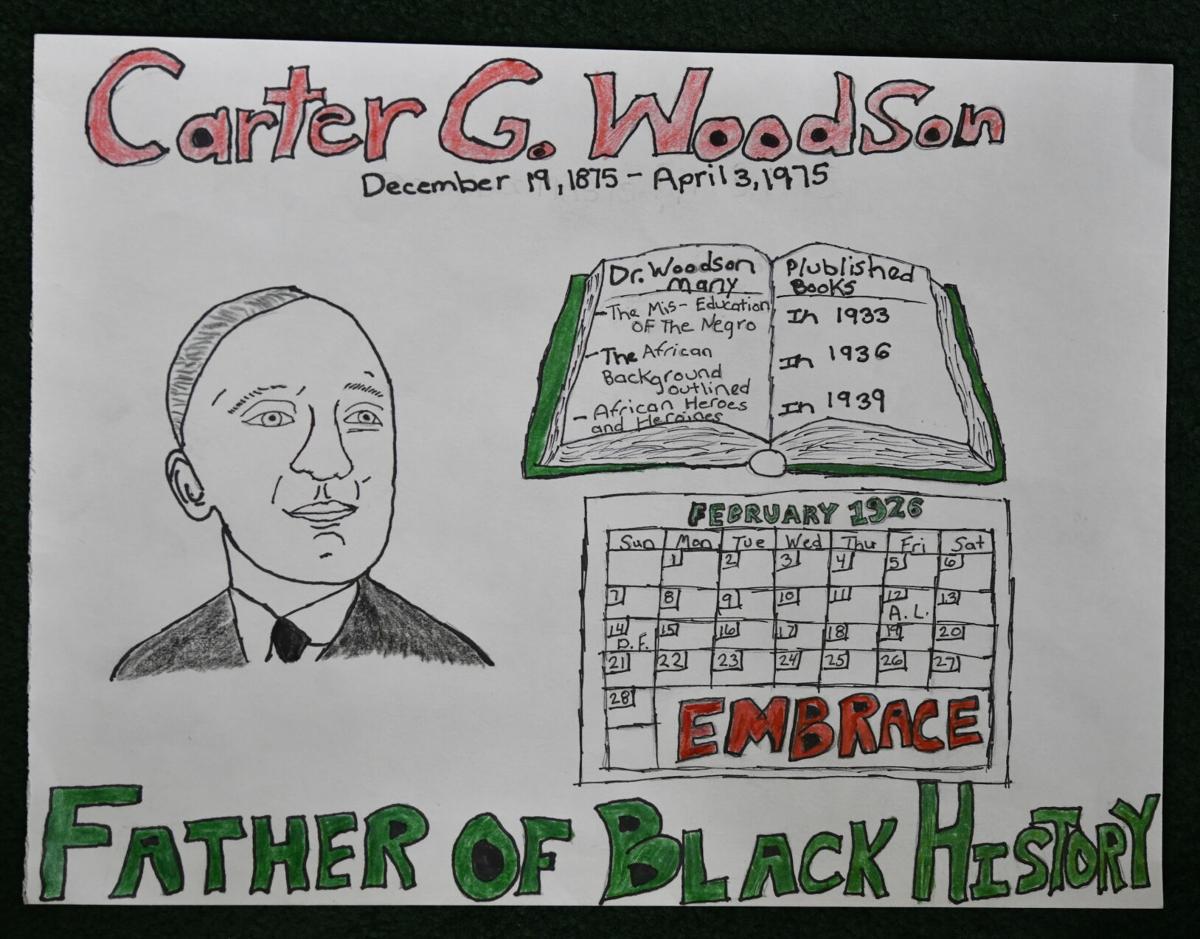 Carter G. Woodson
December 19, 1875 - April 3, 1975
Dr. Woodson
many
- The Mis- Education
OF The Negro
- The African
Background
outlined
- African Heroes
and Heroines
Plublished
Books
In 1933
In 1936
In 1939
FEBRUARY 1926
Sun Mon Tue Wed Thu Fri Sat
1 2 3 4 5 6
7 8 9 10 11 12 13
A. L.
14 15 16 17 18 19 20
D. F.
21 22 23 24 25 26 27
28
EMBRACE
FATHER OF BLACK HISTORY